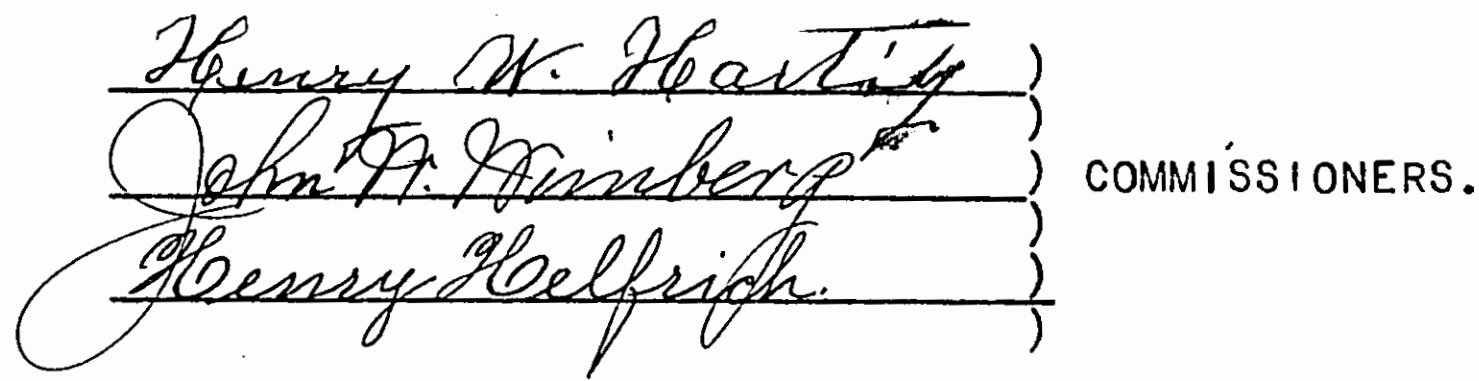 Henry W. Hartig )
)
John N. Wimberg ) COMMISSIONERS.
)
Henry Helfrich. )
)